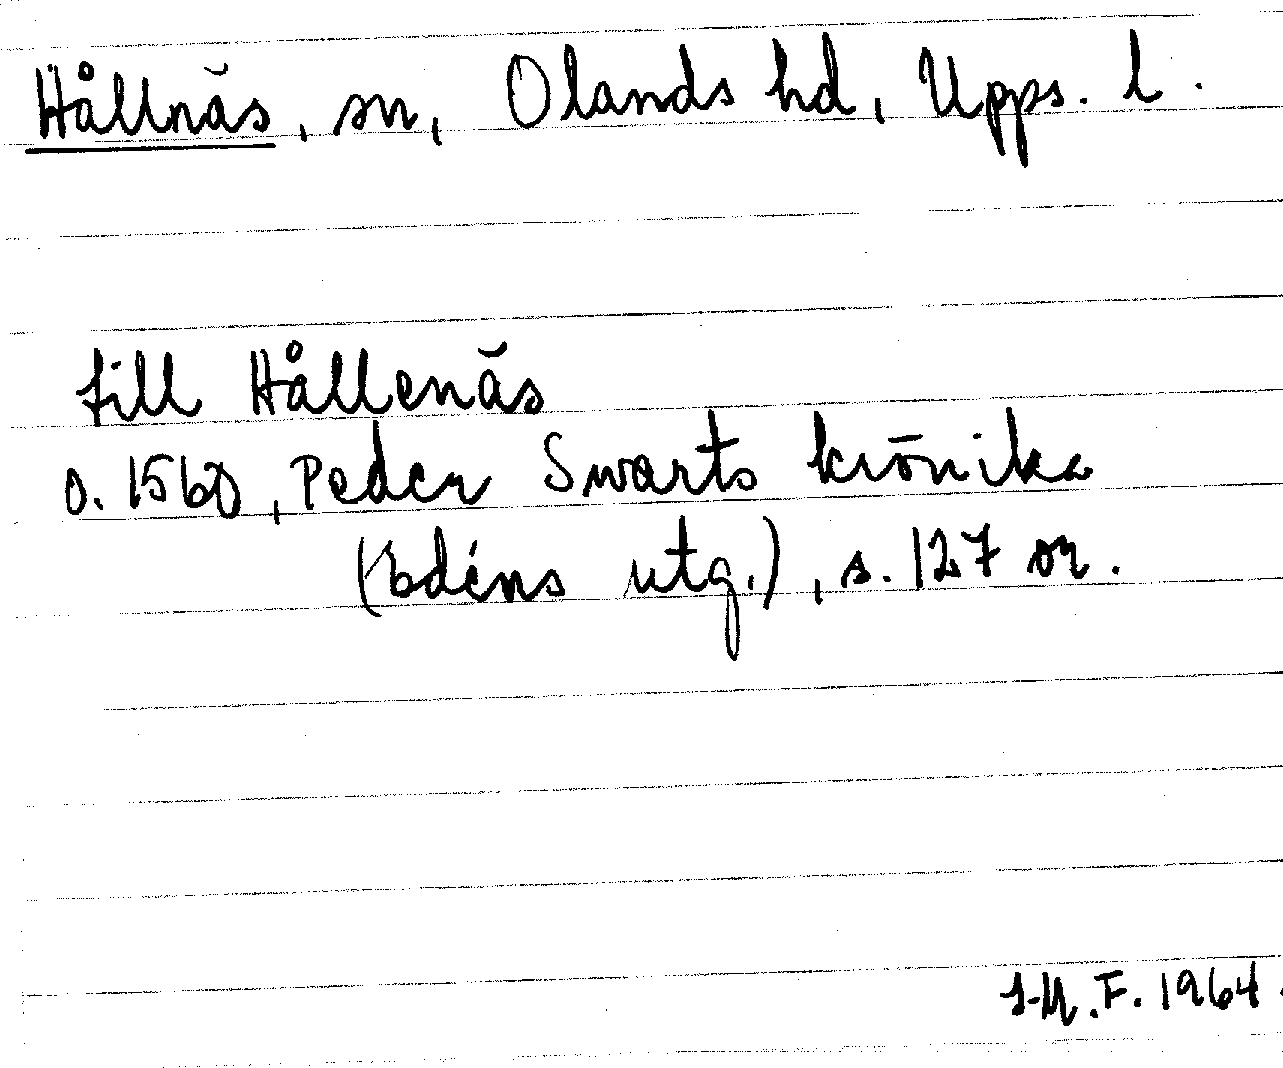 Hållnäs, sn, Olands hd, Upps. l.
till Hållenäs
o. 1560, Peder Swarts krönika
(Edéns utg.), s. 127 or.
I-M.F. 1964.